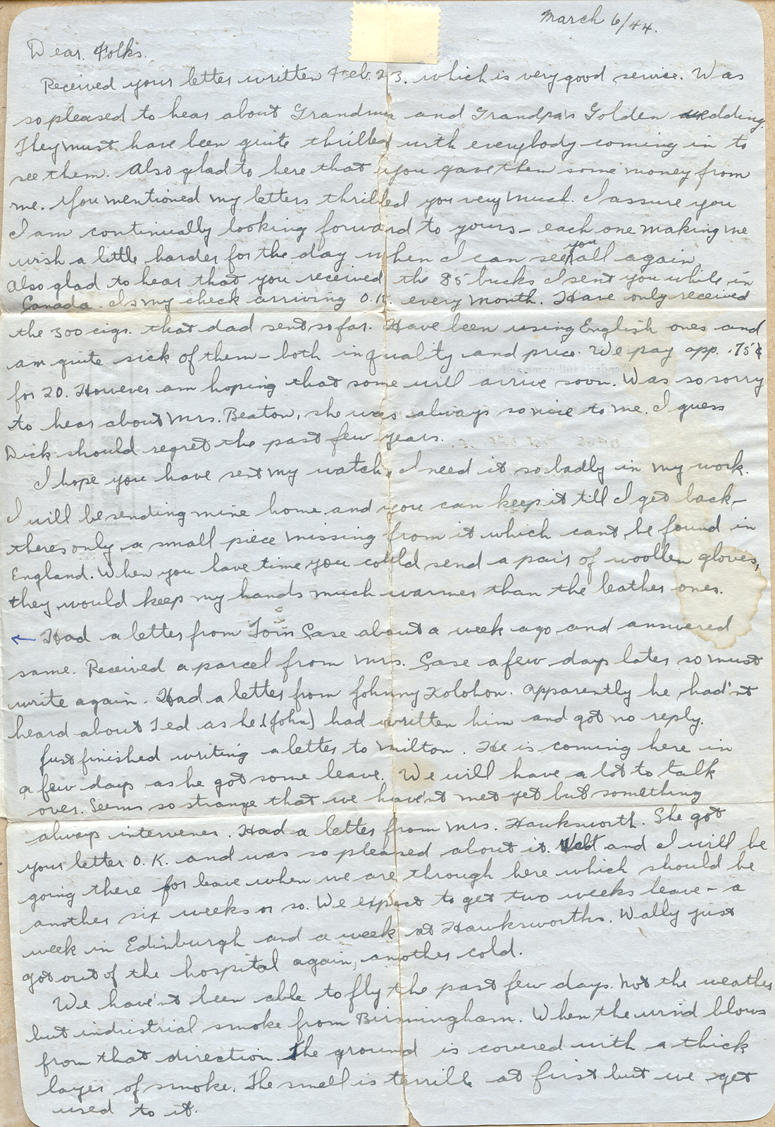 March 6/44.
Dear Folks,
Received your letter written Feb. 23. which is very good service. Was
so pleased to hear about Grandma and Grandpa's Golden wedding.
They must have been quite thrilled with everybody coming in to
see them. Also glad to here that you gave them some money from
me. You mentioned my letters thrilled you very much. I assure you
I am continually looking forward to yours - each one making me
wish a little harder for the day when I can see you all again.
Also glad to hear that you received the 85 bucks I sent you while in
Canada. Is my check arriving O.K. every month. Have only received
the 300 cigs. that dad sent so far. Have been using English ones and
am quite sick of them - both in quality and price. We pay app. .75¢
for 20. However am hoping that some will arrive soon. Was so sorry
to hear about Mrs. Beaton, she was always so nice to me. I guess
Dick should regret the past few years.
I hope you have sent my watch, I need it so badly in my work.
I will be sending mine home and you can keep it till I get back -
theres only a small piece missing from it which cant be found in
England. When you have time you could send a pair of woollen gloves,
they would keep my hands much warmer than the leather ones.
← Had a letter from Tom Gase about a week ago and answered
same. Received a parcel from Mrs. Gase a few days later so must
write again. Had a letter from Johnny Kolohon. Apparently he had'nt
heard about Ted as he (John) had written him and got no reply.
Just finished writing a letter to Milton. He is coming here in
a few days as he got some leave. We will have a lot to talk
over. Seems so strange that we have'nt met yet but something
always intervenes. Had a letter from Mrs. Hawksworth. She got
your letter O.K. and was so pleased about it. and I will be
going there for leave when we are through here which should be
another six weeks or so. We expect to get two weeks leave - a
week in Edinburgh and a week at Hawksworths. Wally just
got out of the hospital again, another cold.
We have'nt been able to fly the past few days. Not the weather
but industrial smoke from Birmingham. When the wind blows
from that direction. The ground is covered with a thick
layer of smoke. The smell is terrible at first but we get
used to it.